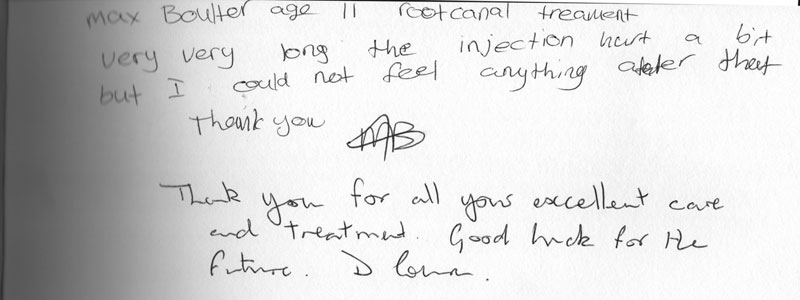 max Boulter age 11 rootcanal treament
very very long the injection hurt a bit
but I could not feel anything after that
Thank you MB
Thank you for all your excellent care
and treatment. Good luck for the
future. D